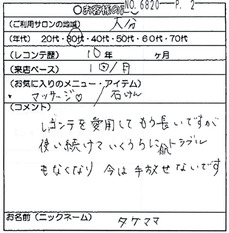 ○お客様の
NO. 6820 P. 2
(ご利用サロンの地域) 大分
(年代) 20代・30代・40代・50代・60代・70代
(レコンテ歴) 10年 ヶ月
(来店ペース) 1回/月
(お気に入りのメニュー・アイテム)
マッサージ♡ / 石けん
(コメント)
レコンテを愛用してもう長いですが
使い続けていくうちに肌トラブル
もなくなり 今は手放せないです
お名前(ニックネーム)
タケママ